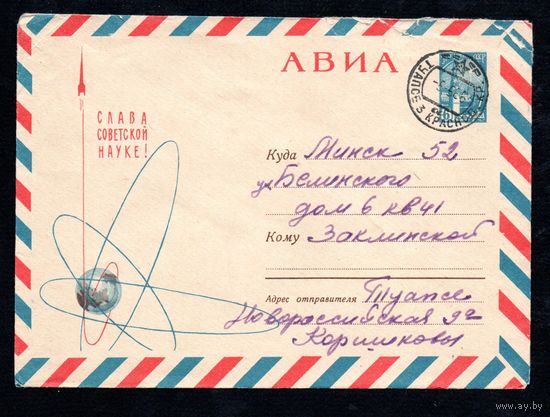 АВИА
СЛАВА
СОВЕТСКОЙ
НАУКЕ!
ТУАПСЕ 3 КРАСНОД
Куда Минск 52
ул Белинского
дом 6 кв 41
Кому Заклинской
Адрес отправителя Туапсе
Новороссийская 9
Коршиковы
www.ay.by